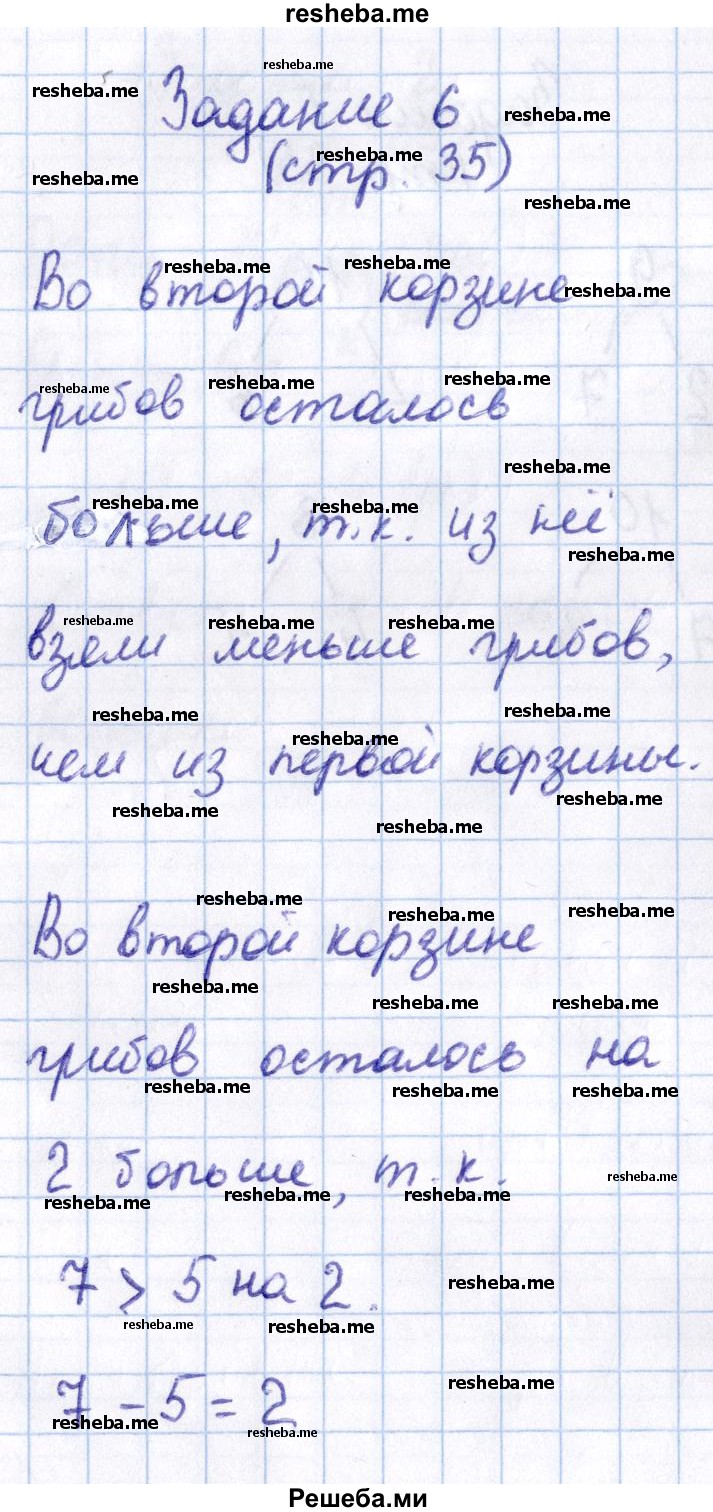 resheba.me
Задание 6
(стр. 35)
Во второй корзине
грибов осталось
больше, т.к. из неё
взяли меньше грибов,
чем из первой корзины.
Во второй корзине
грибов осталось на
2 больше, т.к.
7 > 5 на 2.
7 - 5 = 2
Решеба.ми